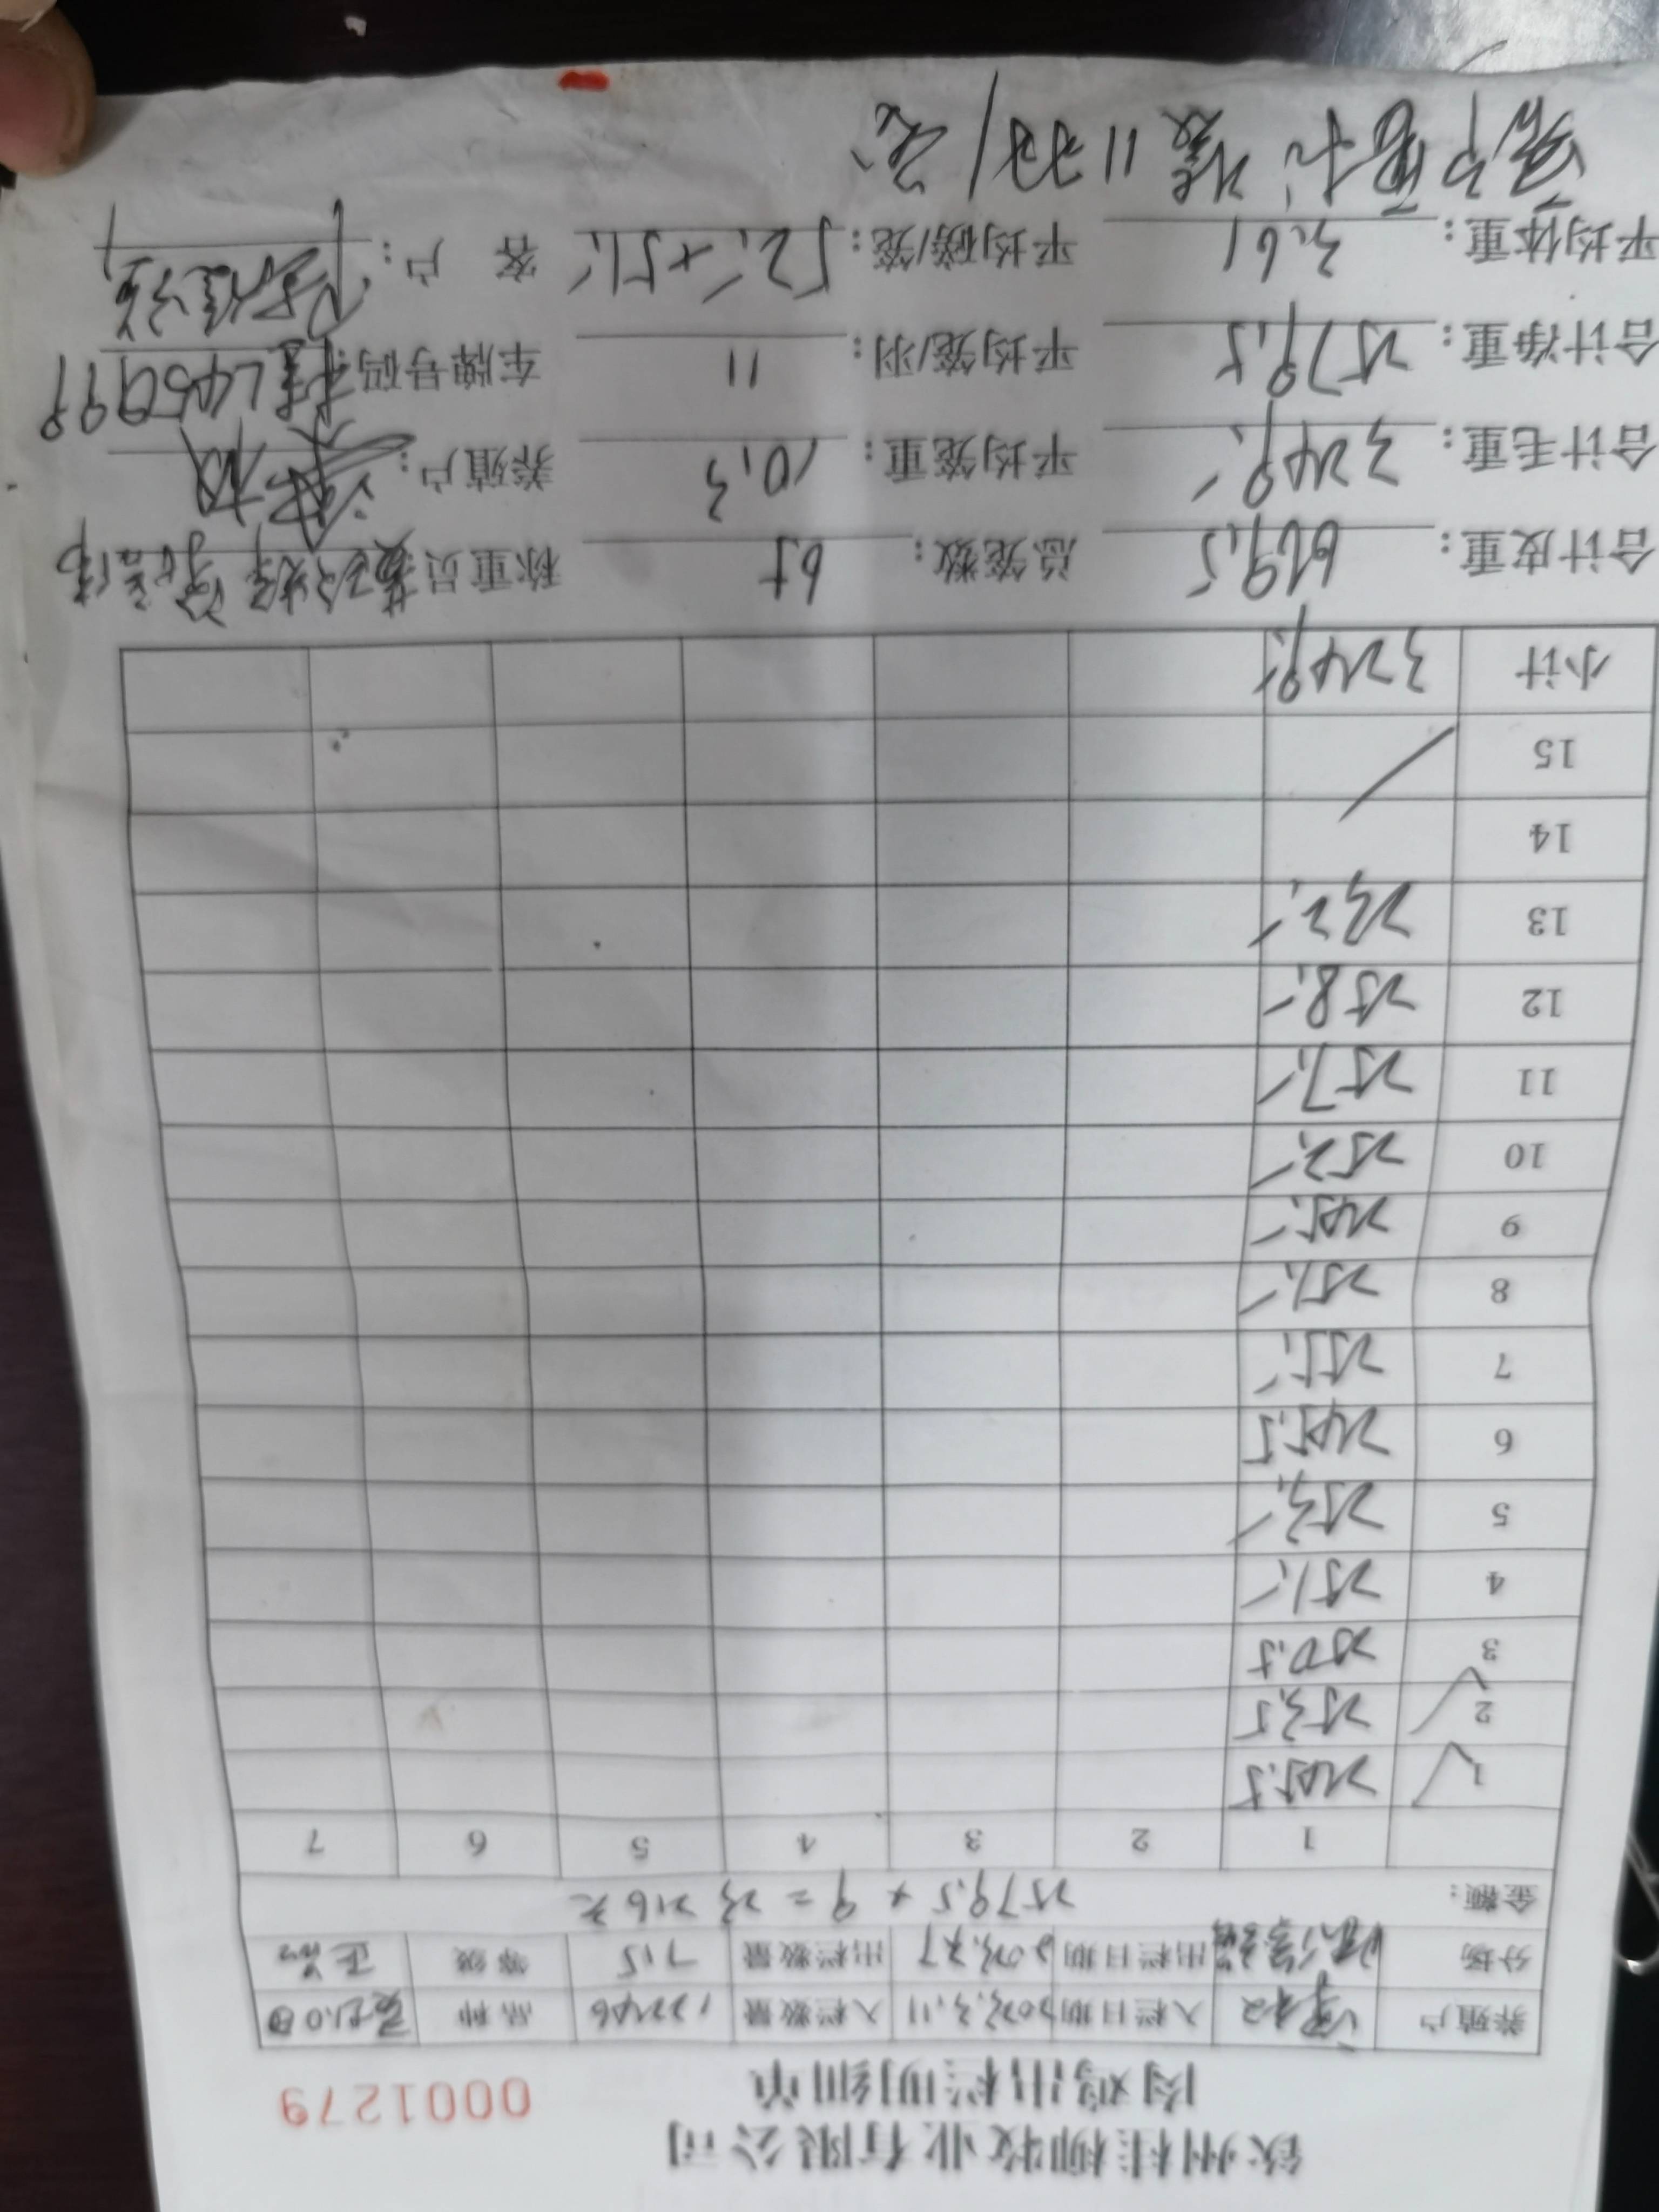 钦州桂柳牧业有限公司
肉鸡出栏明细单
0001279
养殖户 入栏日期 2023.3.11 入栏数量 12246 品种
分场 出栏日期 2023.7.7 出栏数量 715 等级 正品
金额: 2579.5 × 9 = 23216元
1 2 3 4 5 6 7
1 245.5
2 253.5
3 250.5
4 251.-
5 253.-
6 245.5
7 255.-
8 251.-
9 245.-
10 252.-
11 257.-
12 258.-
13 232.-
14
15
小计 3249.-
合计皮重: 669.5 总笼数: 65 称重员
合计毛重: 3249.- 平均笼重: 10.3 养殖户:
合计净重: 2579.5 平均笼/羽: 11 车牌号码: 桂L45099
平均体重: 3.61 平均磅/笼: 52.-+51.- 客 户: